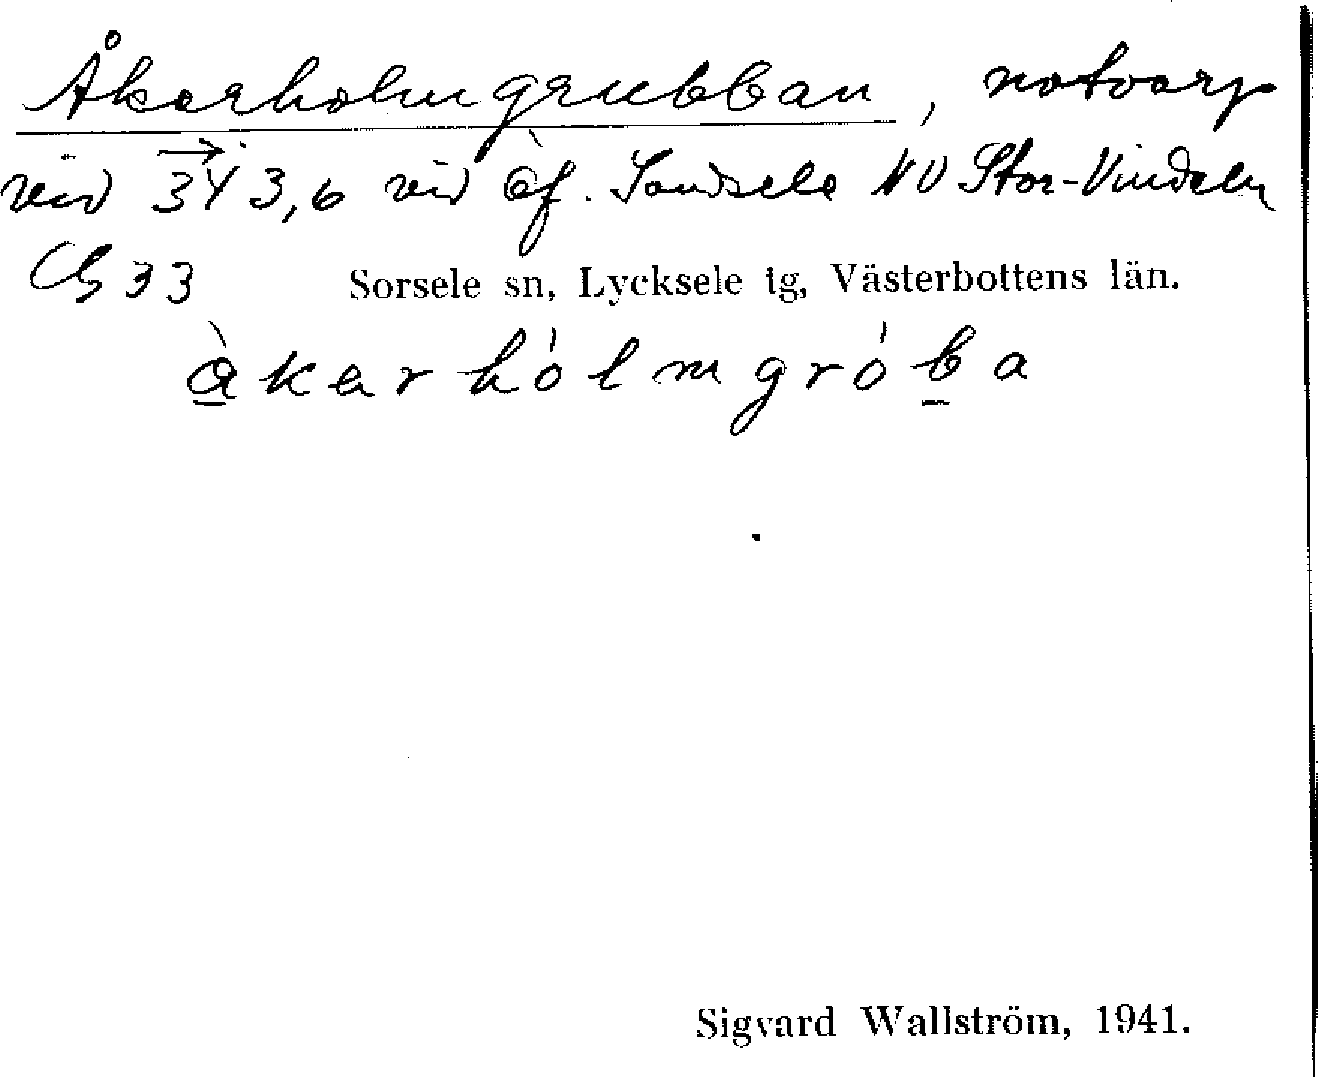 Åkerholmgrubban, notvarp
vid 343,6 vid öf. Sandsele NV Stor-Vindeln
Cb 33 Sorsele sn, Lycksele tg, Västerbottens län.
åkerhólmgróba
Sigvard Wallström, 1941.